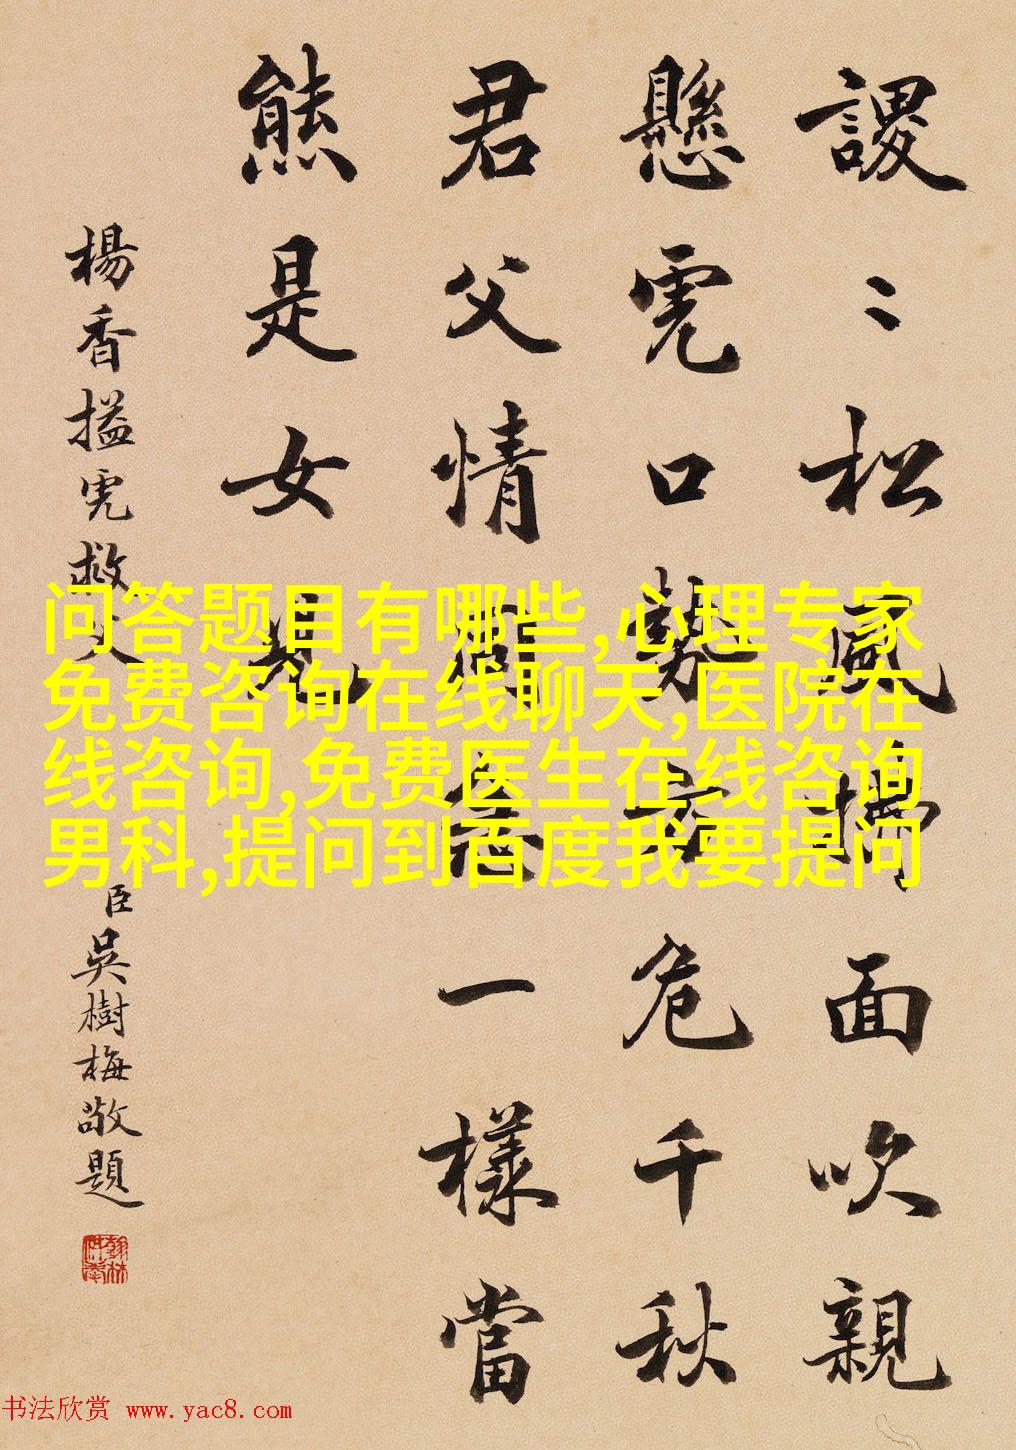 謖〻松風拂面吹親
懸虎口勢危千秋
君父情同急一樣當
熊是女兒
楊香搤虎救父
臣吳樹梅敬題
翰林供奉
问答题目有哪些,心理专家
免费咨询在线聊天,医院在
线咨询,免费医生在线咨询
男科,提问到百度我要提问
书法欣赏 www.yac8.com